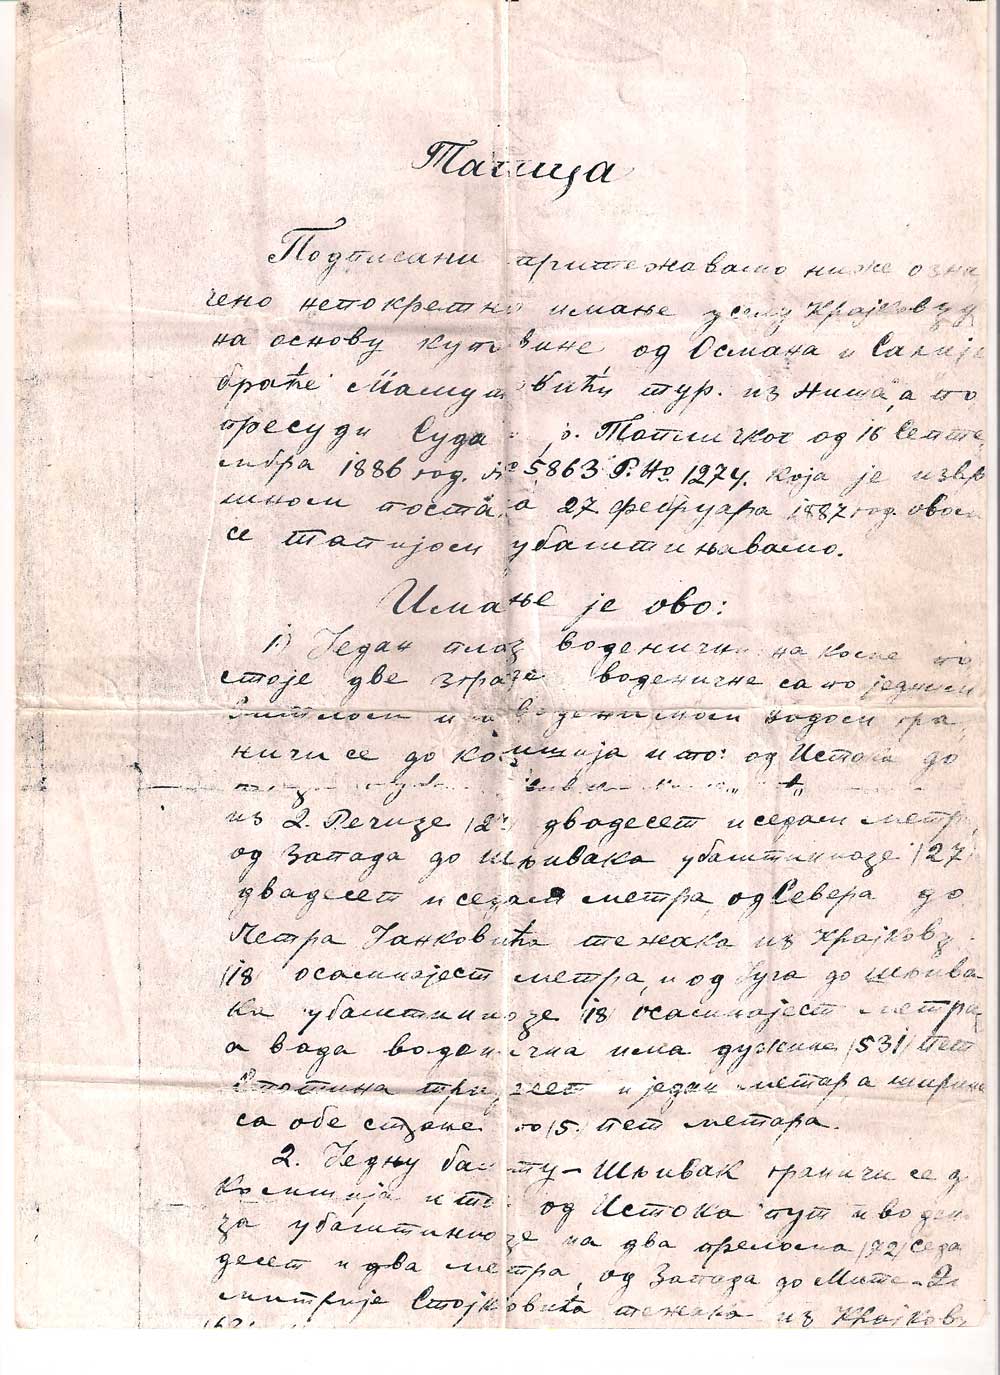 Тапија
Подписани притежавамо ниже озна
чено непокретно имање у селу Крајковцу
на основу куповине од Османа и Салије
браће Мамутовићи тур. из Ниша, а по
пресуди Суда о. Топличког од 16 Септе
мбра 1886 год. № 5863 Р. № 1274. која је извр
шном постала 27 фебруара 1887 год. овом
се тапијом убаштињавамо.
Имање је ово:
1) Један плаз воденични на коме по
стоје две зграде воденичне са по једним
витлом и водом гра
ничи се до комшија и то: од Истока до
из Д. Речице /27/ двадесет и седам метра,
од Запада до шљивака убаштиниоце /27/
двадесет и седам метра, од Севера до
Петра Јанковића тежака из Крајковца
/18/ осамнајест метра, и од Југа до шљива
ка убаштиниоце /18/ осамнајест метра,
а вада воденична има дужине /531/ пет
стотина тридесет и један метар, а ширине
са обе стране по /5/ пет метара.
2. Једну башту – Шљивак граничи се д
комшија и то: од Истока пут и воден
за убаштиниоце на два прелома /72/ седа
десет и два метра, од Запада до Мите – Ди
митрије Стојковића тежака из Крајковц